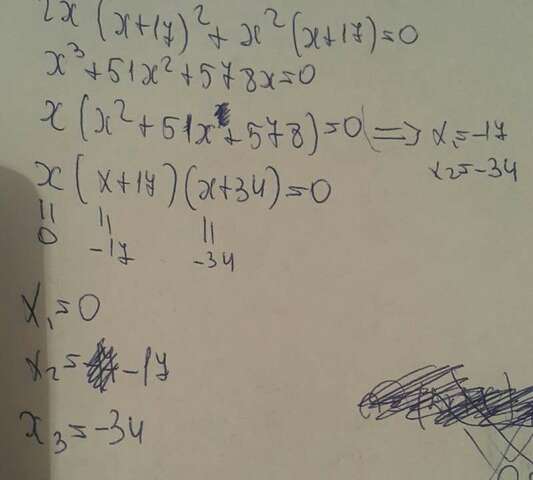 2x (x+17)² + x² (x+17)=0
x³+51x²+578x=0
x (x²+51x+578)=0 => x₁=-17
x₂=-34
x (x+17)(x+34)=0
|| || ||
0 -17 -34
x₁=0
x₂= -17
x₃=-34